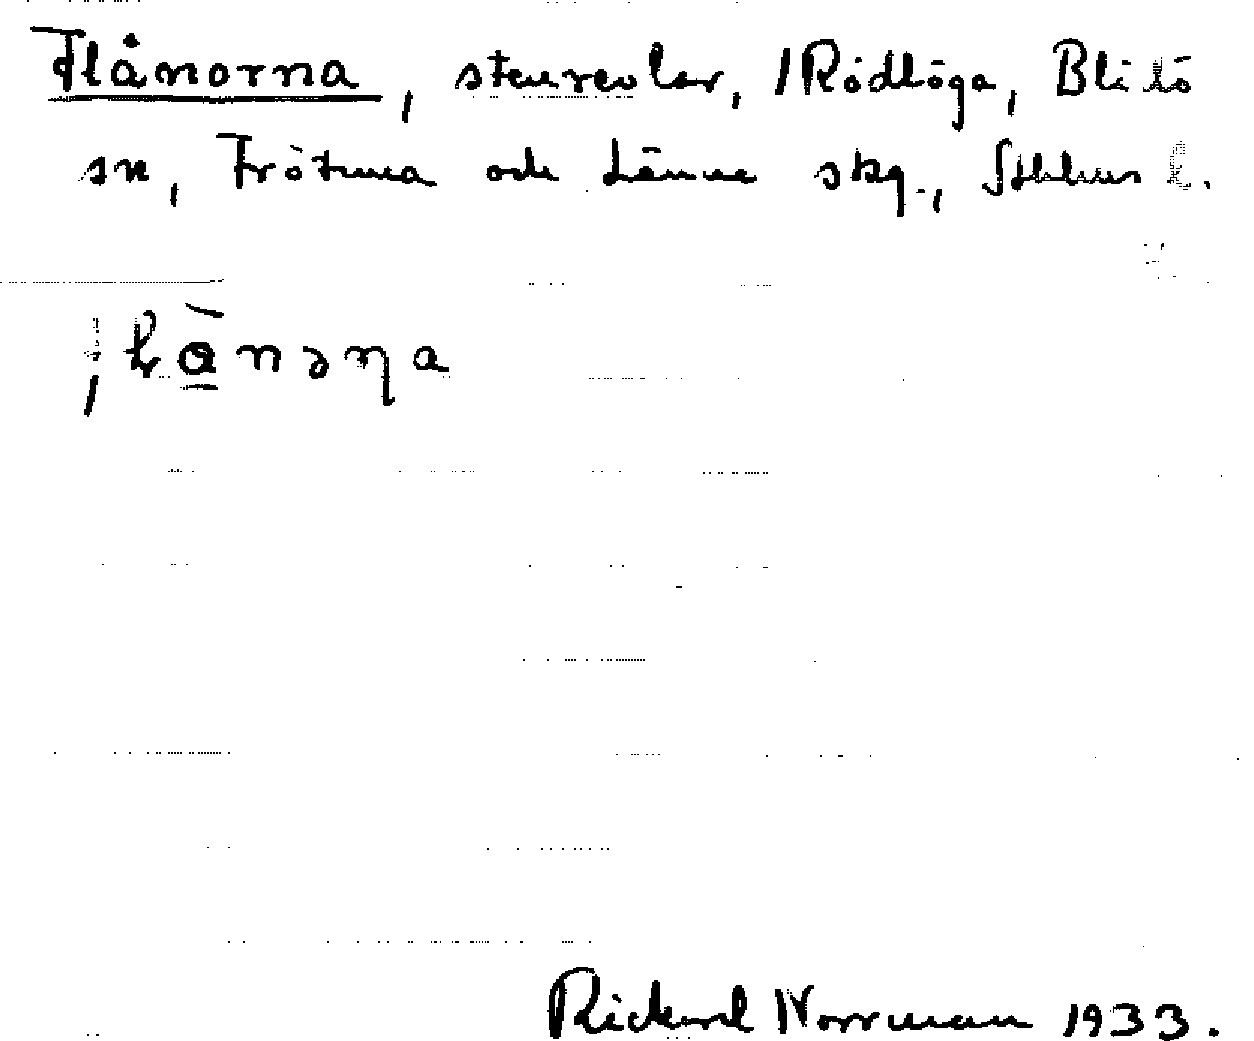 Flånorna, stenrevlar, /Rödlöga, Blidö
sn, Frötuna och Länna skg., Sthlms l.
Rickard Norrman 1933.